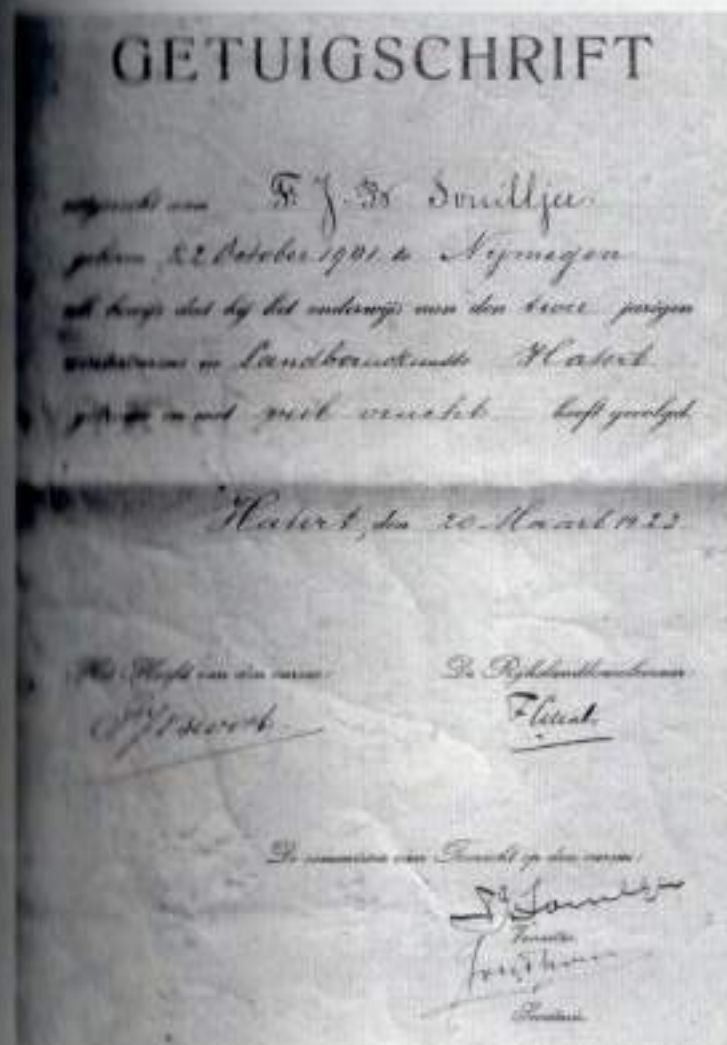 GETUIGSCHRIFT
uitgereikt aan F. J. W Souilljee
geboren 22 October 1901 te Nijmegen
als bewijs dat hij het onderwijs aan den twee jarigen
wintercursus in Landbouwkunde Hatert
en met veel vrucht heeft gevolgd.
Hatert, den 20 Maart 1923
Het Hoofd van den cursus:
De Rijkslandbouwleeraar:
De commissie van Toezicht op den cursus:
Voorzitter
Secretaris